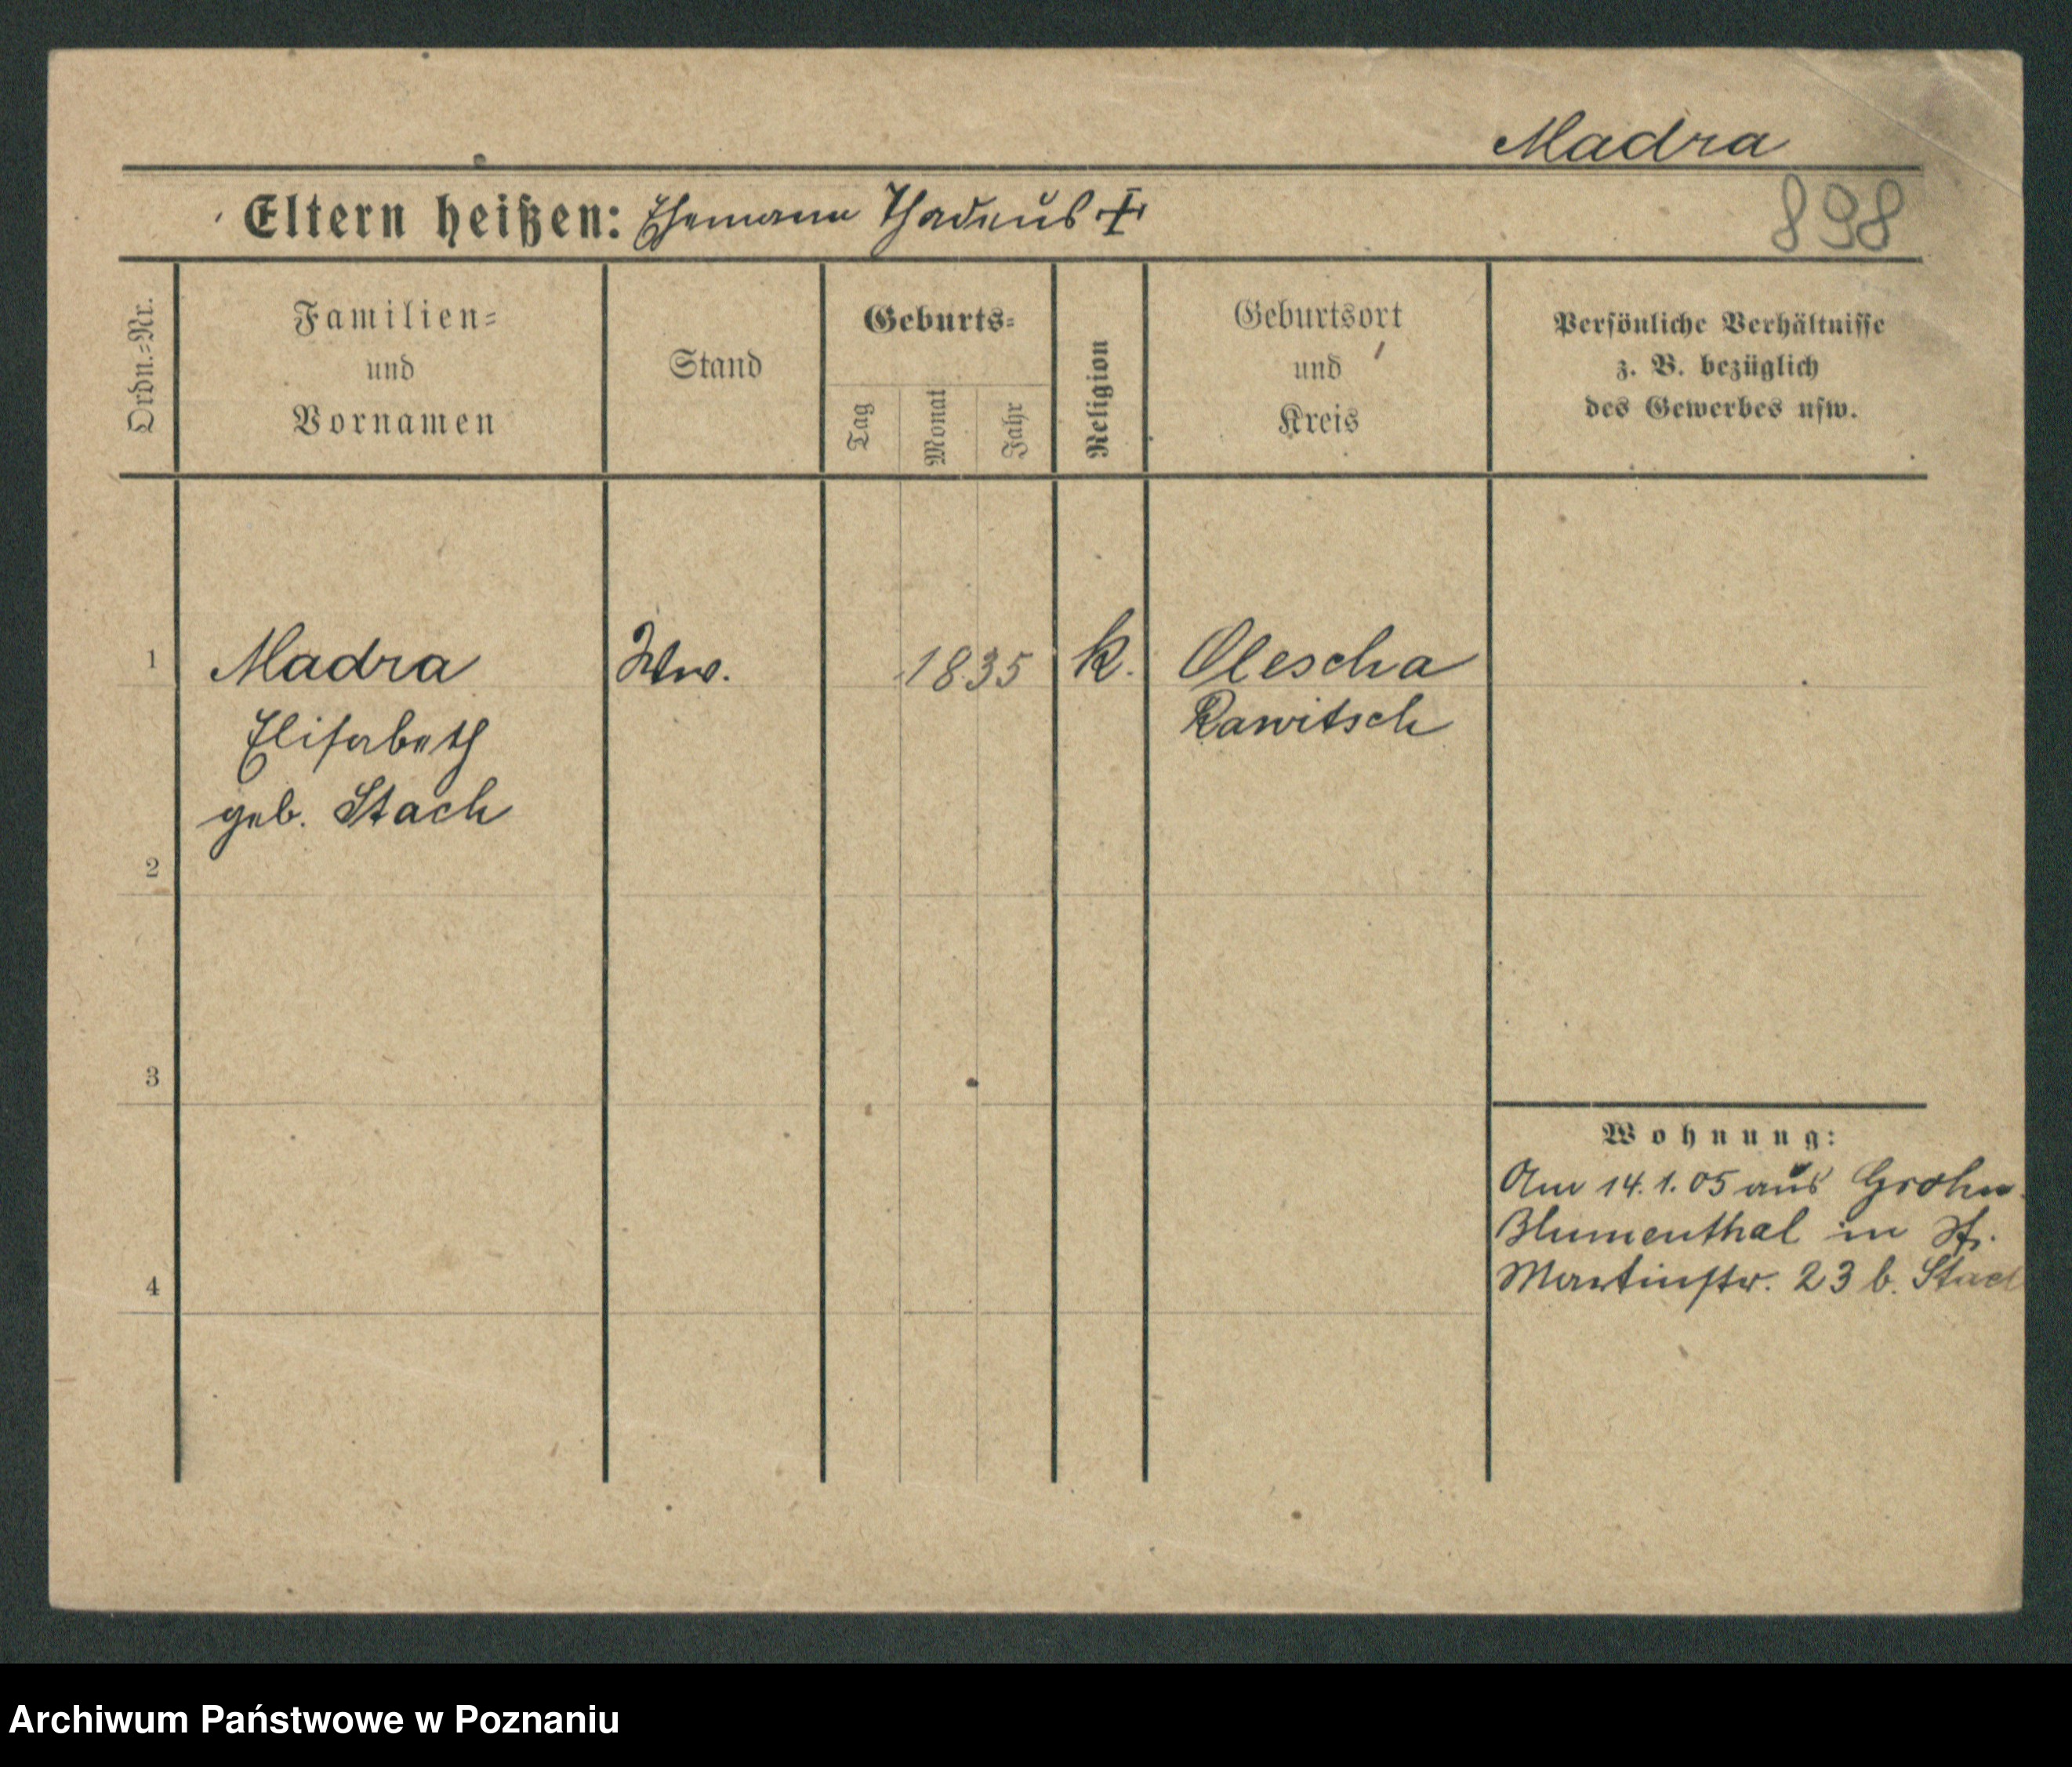 Madra
Eltern heißen: Ehemann Thadeus †
898
Ordn.-Nr.
Familien-
und
Vornamen
Stand
Geburts-
Tag
Monat
Jahr
Religion
Geburtsort
und
Kreis
Persönliche Verhältnisse
z. B. bezüglich
des Gewerbes usw.
1
Madra
Ww.
1835
k.
Olescha
Rawitsch
Elisabeth
geb. Stach
2
3
4
Wohnung:
Am 14.1.05 aus Grohn-
Blumenthal in St.
Martinstr. 23 b. Stach
Archiwum Państwowe w Poznaniu